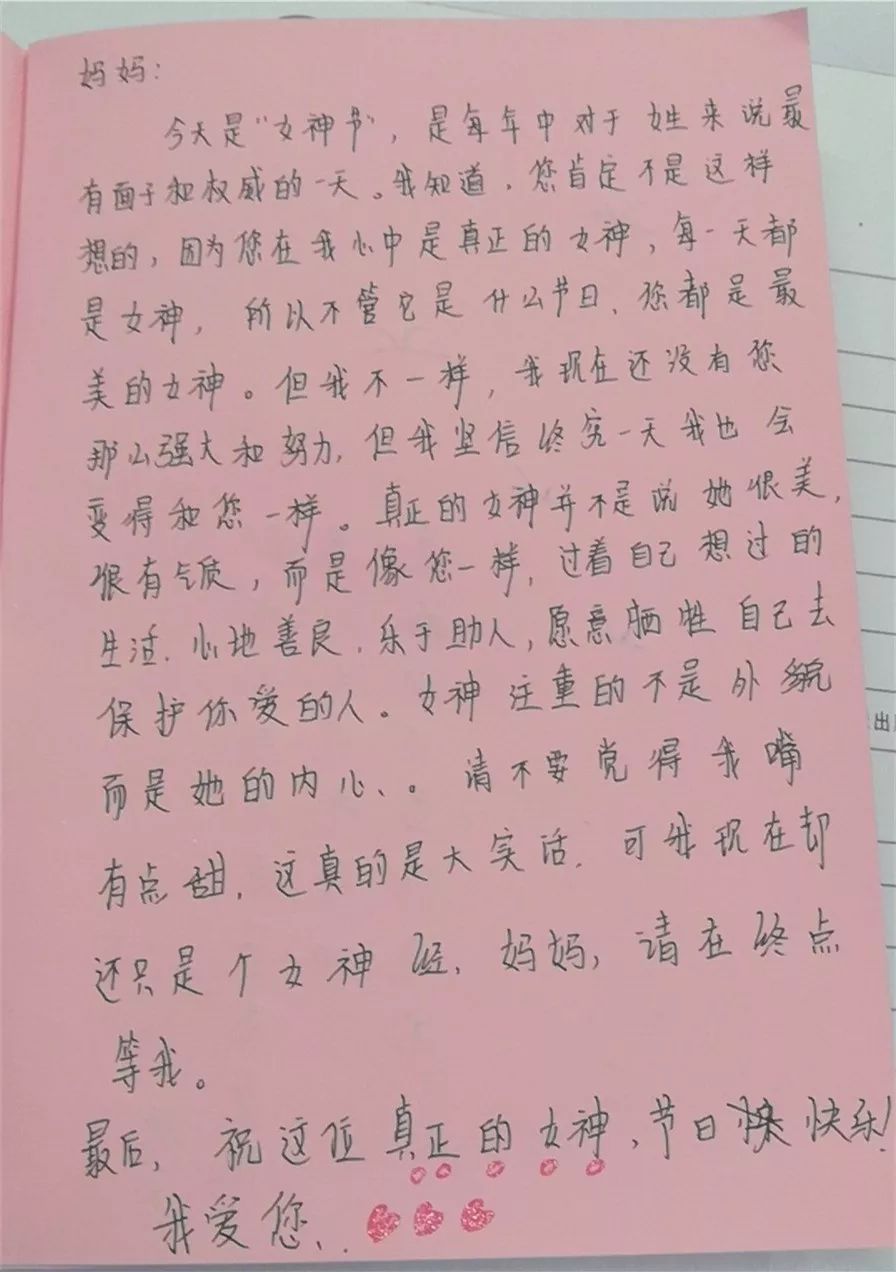 妈妈：
今天是“女神节”，是每年中对于女姓来说最
有面子和权威的一天。我知道，您肯定不是这样
想的，因为您在我心中是真正的女神，每一天都
是女神，所以不管它是什么节日、您都是最
美的女神。但我不一样，我现在还没有您
那么强大和努力，但我坚信终究一天我也会
变得和您一样。真正的女神并不是说她很美，
很有气质，而是像您一样，过着自己想过的
生活、心地善良、乐于助人，愿意牺牲自己去
保护你爱的人。女神注重的不是外貌
而是她的内心、。请不要觉得我嘴
有点甜，这真的是大实话，可我现在却
还只是个女神经，妈妈，请在终点
等我。
最后，祝这位真正的女神，节日快乐！
我爱您、
出